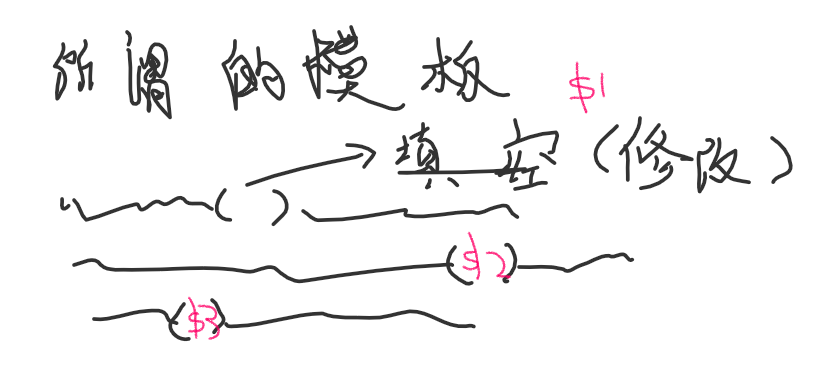 所谓的模板 $1
填空(修改)
( )
($2)
($3)